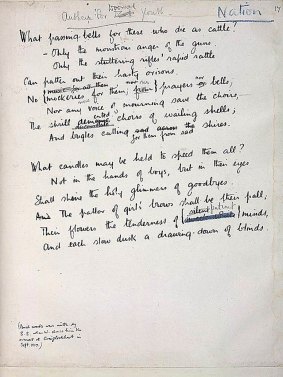 Nation
Anthem for Doomed Youth
What passing-bells for these who die as cattle?
- Only the monstrous anger of the guns.
Only the stuttering rifles' rapid rattle
Can patter out their hasty orisons.
No mockeries for them; prayers nor bells,
Nor any voice of mourning save the choirs,
The shrill demented choirs of wailing shells;
And bugles calling for them from sad shires.
What candles may be held to speed them all?
Not in the hands of boys, but in their eyes
Shall shine the holy glimmers of goodbyes.
And The pallor of girls' brows shall be their pall;
Their flowers the tenderness of silent patient minds,
And each slow dusk a drawing-down of blinds